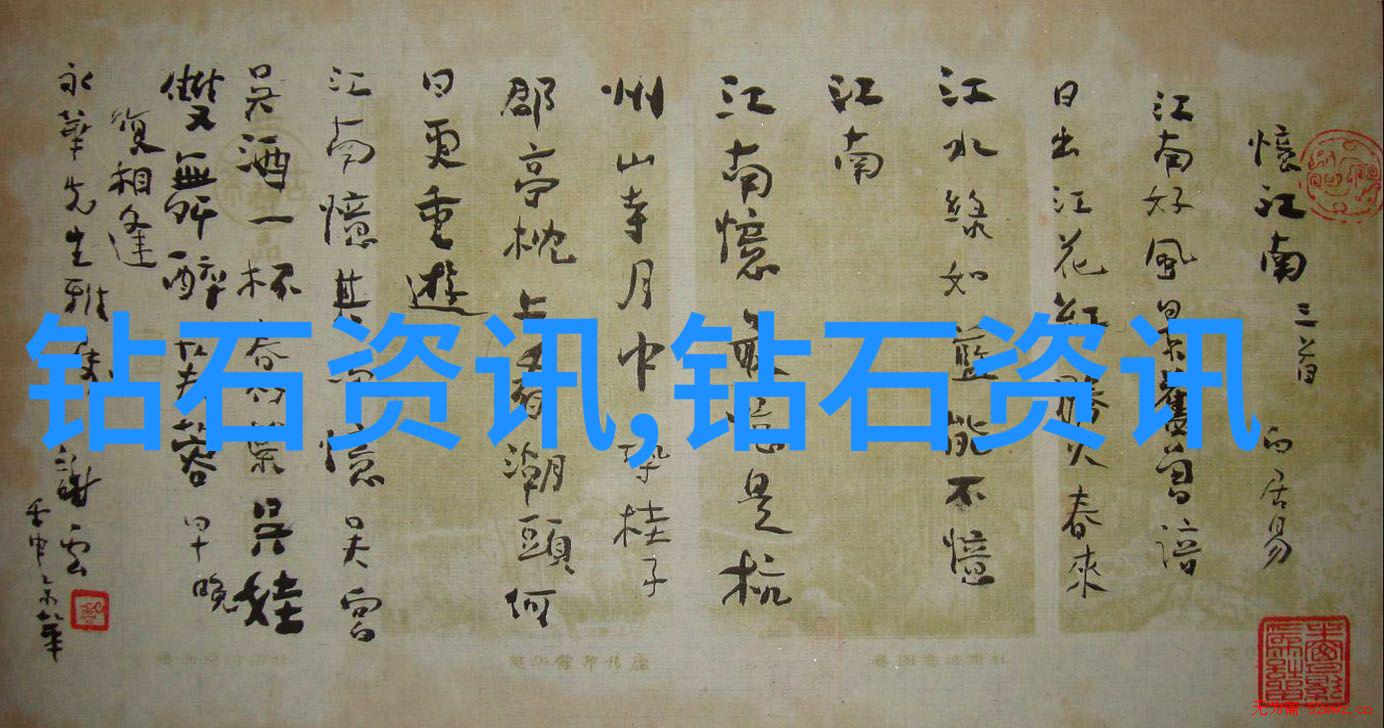 憶江南 三首 白居易
江南好風景舊曾諳
日出江花紅勝火春來
江水綠如藍能不憶
江南
江南憶最憶是杭
州山寺月中尋桂子
郡亭枕上看潮頭何
日更重遊
江南憶其次憶吳宮
吳酒一杯春竹葉吳娃
雙舞醉芙蓉早晚
復相逢
永華先生雅 謝雲
壬申
钻石资讯,钻石资讯
无为斋 52wwz.cn